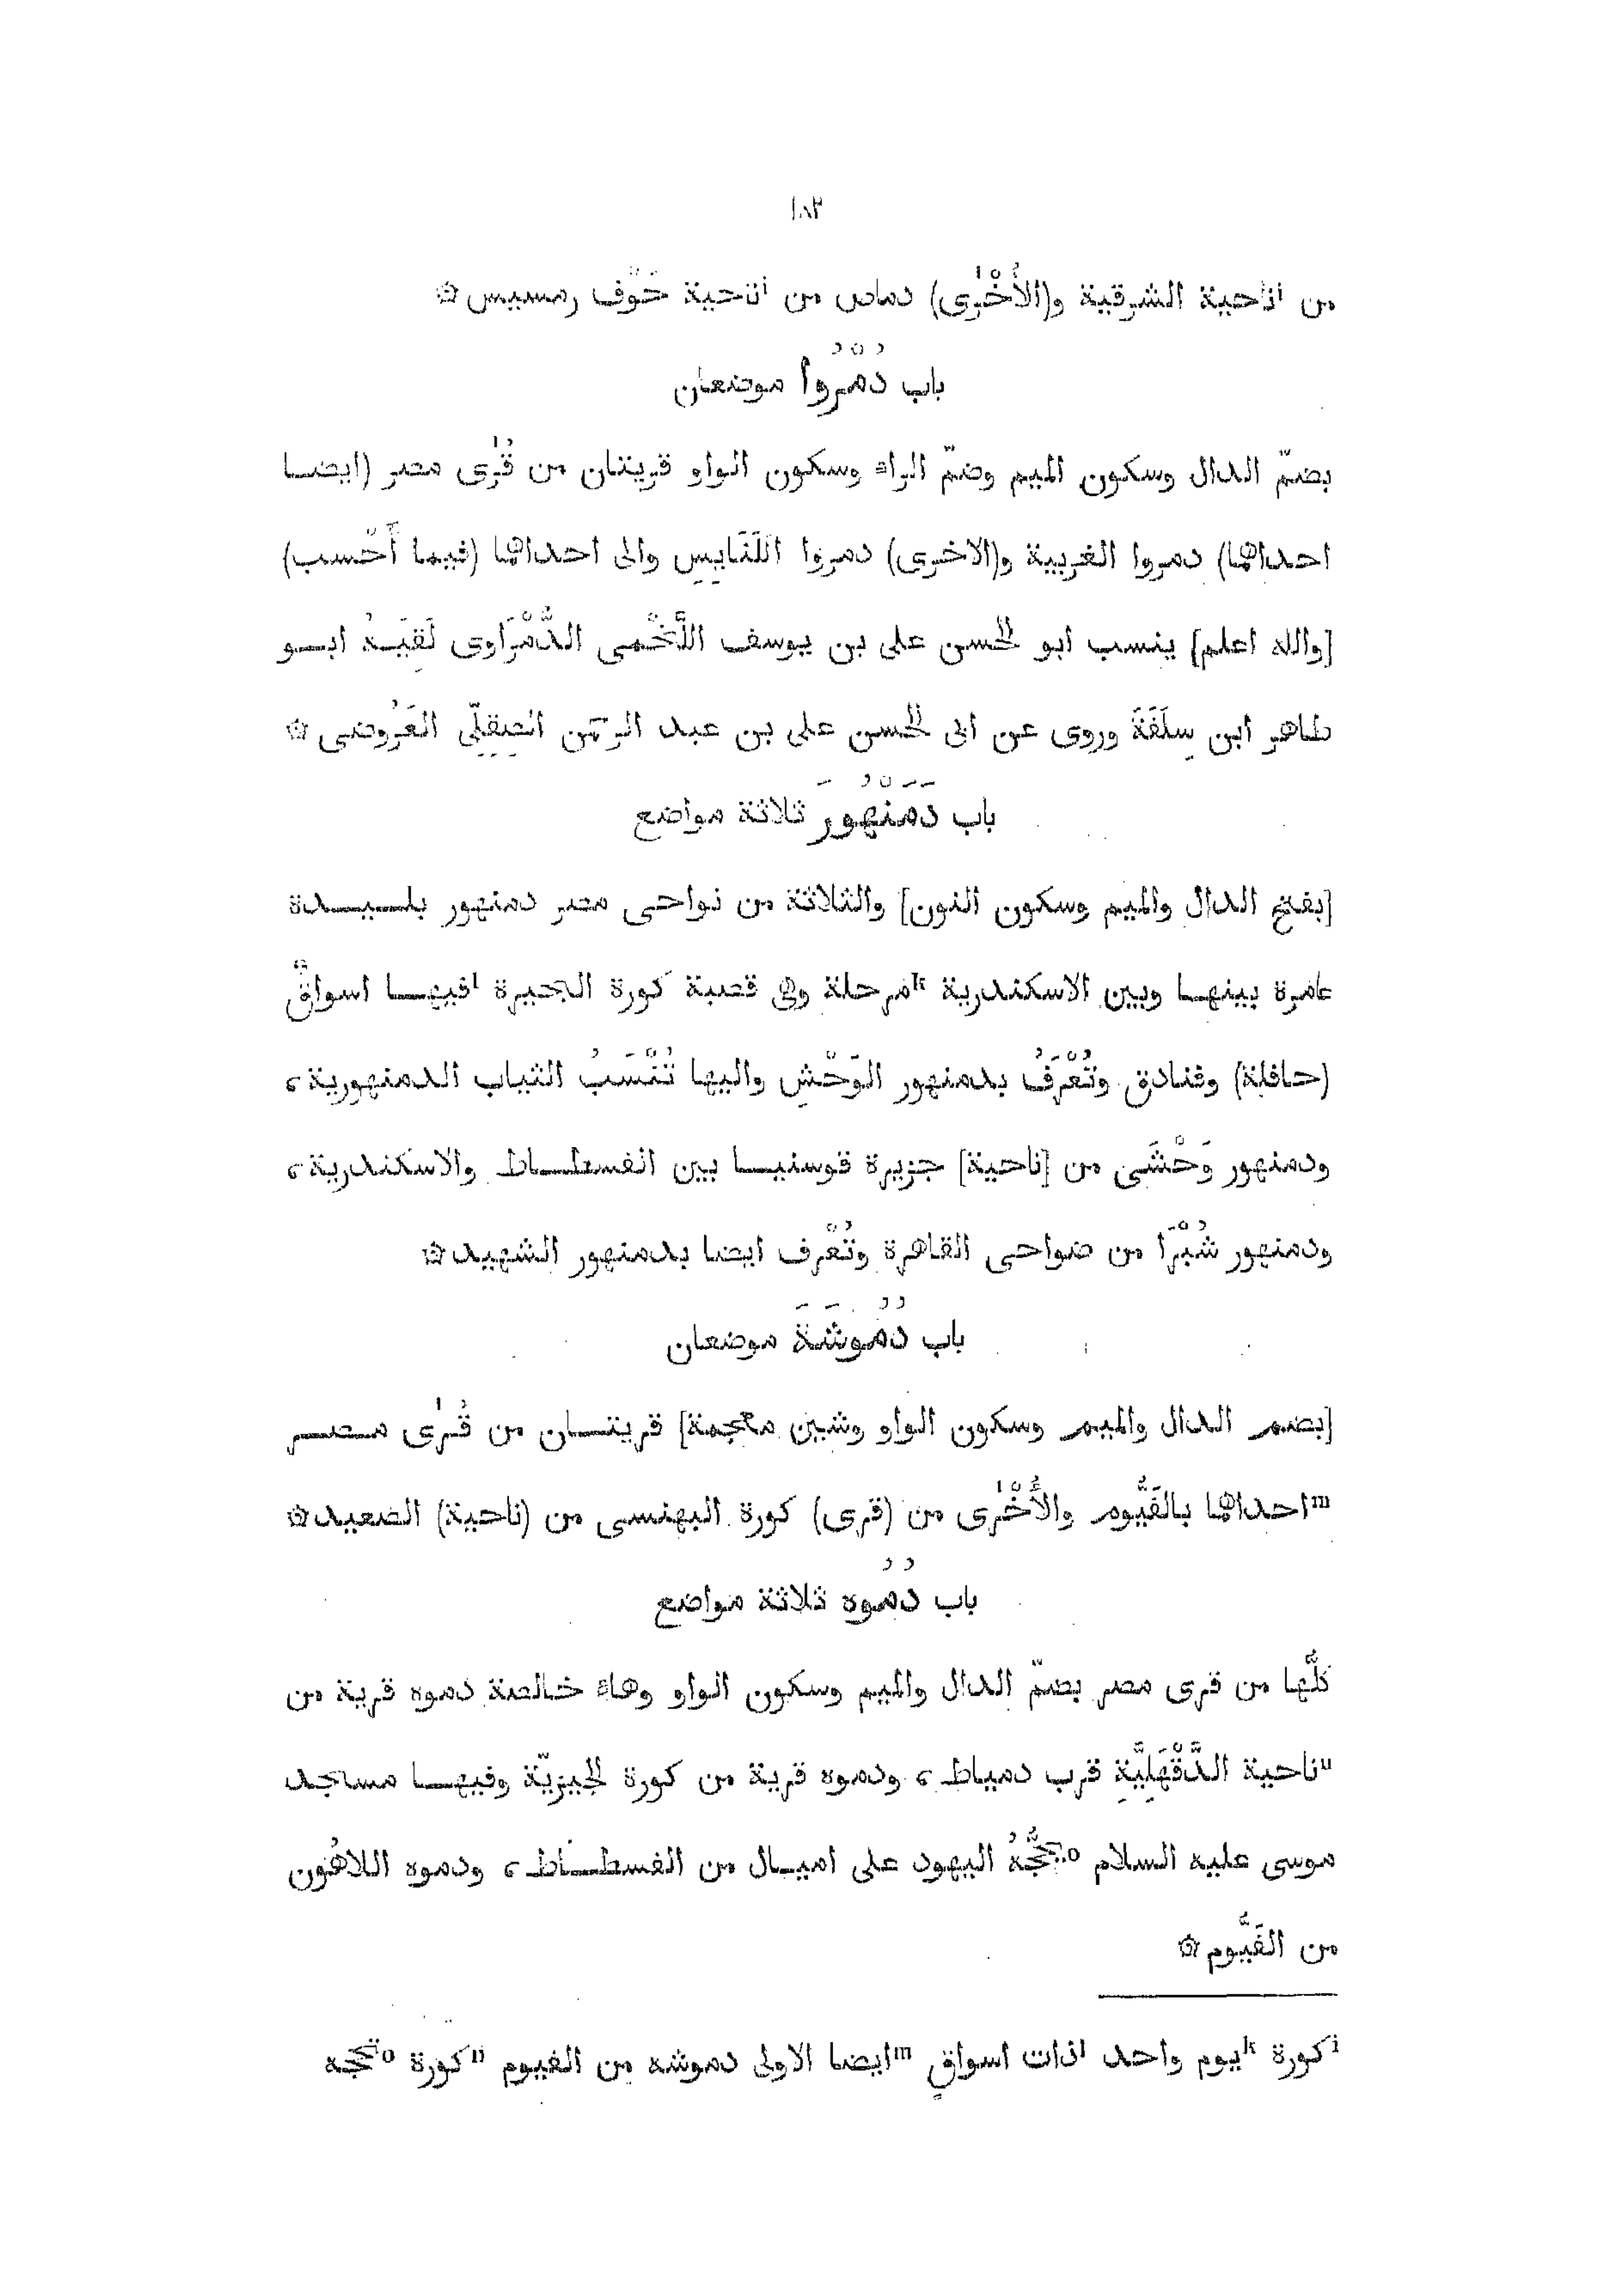 ١٨٢
من iناحية الشرقية و(الأُخْرٰى) دماص من iناحية حَوْف رمسيس۞
باب دُمْرُوا موضعان
بضمّ الدال وسكون الميم وضمّ الراء وسكون الواو قريتان من قُرٰى مصر (ايضا
احداهما) دمروا الغربية و(الاخرى) دمروا اللَّنَايِسِ والى احداهما (فيما أَحْسب)
[والله اعلم] ينسب ابو الحسن على بن يوسف اللَّخْمى الدُّمْرَاوى لَقِيَهُ ابو
طاهر ابن سِلَفَةَ وروى عن ابى الحسن على بن عبد الرحمن الصِقِلّى العَرُوضى۞
باب دَمَنْهُورَ ثلاثة مواضع
[بفتح الدال والميم وسكون النون] والثلاثة من نواحى مصر دمنهور بليدة
عامرة بينها وبين الاسكندرية kمرحلة وهى قصبة كورة البحيرة lفيها اسواقٌ
(حافلة) وفنادق وتُعْرَفُ بدمنهور الوَحْشِ واليها تُنْسَبُ الثياب الدمنهورية،
ودمنهور وَحْشَى من [ناحية] جزيرة قوسنيا بين الفسطاط والاسكندرية،
ودمنهور شُبْرَا من ضواحى القاهرة وتُعْرف ايضا بدمنهور الشهيد۞
باب دُمُوشَةَ موضعان
[بضم الدال والميم وسكون الواو وشين معجمة] قريتان من قُرٰى مصر
mاحداهما بالفَيُّوم والأُخْرٰى من (قرى) كورة البهنسى من (ناحية) الصعيد۞
باب دُمُوه ثلاثة مواضع
كلُّها من قرى مصر بضمّ الدال والميم وسكون الواو وهاء خالصة دموه قرية من
nناحية الدَّقْهَلِيَّةِ قرب دمياط، ودموه قرية من كورة الجيزيّة وفيها مساجد
موسى عليه السلام oيَحُجُّهُ اليهود على اميال من الفسطاط، ودموه اللاهُون
من الفَيُّوم۞
iكورة kيوم واحد lذات اسواقٍ mايضا الاولى دموشه من الفيوم nكورة oتحجه